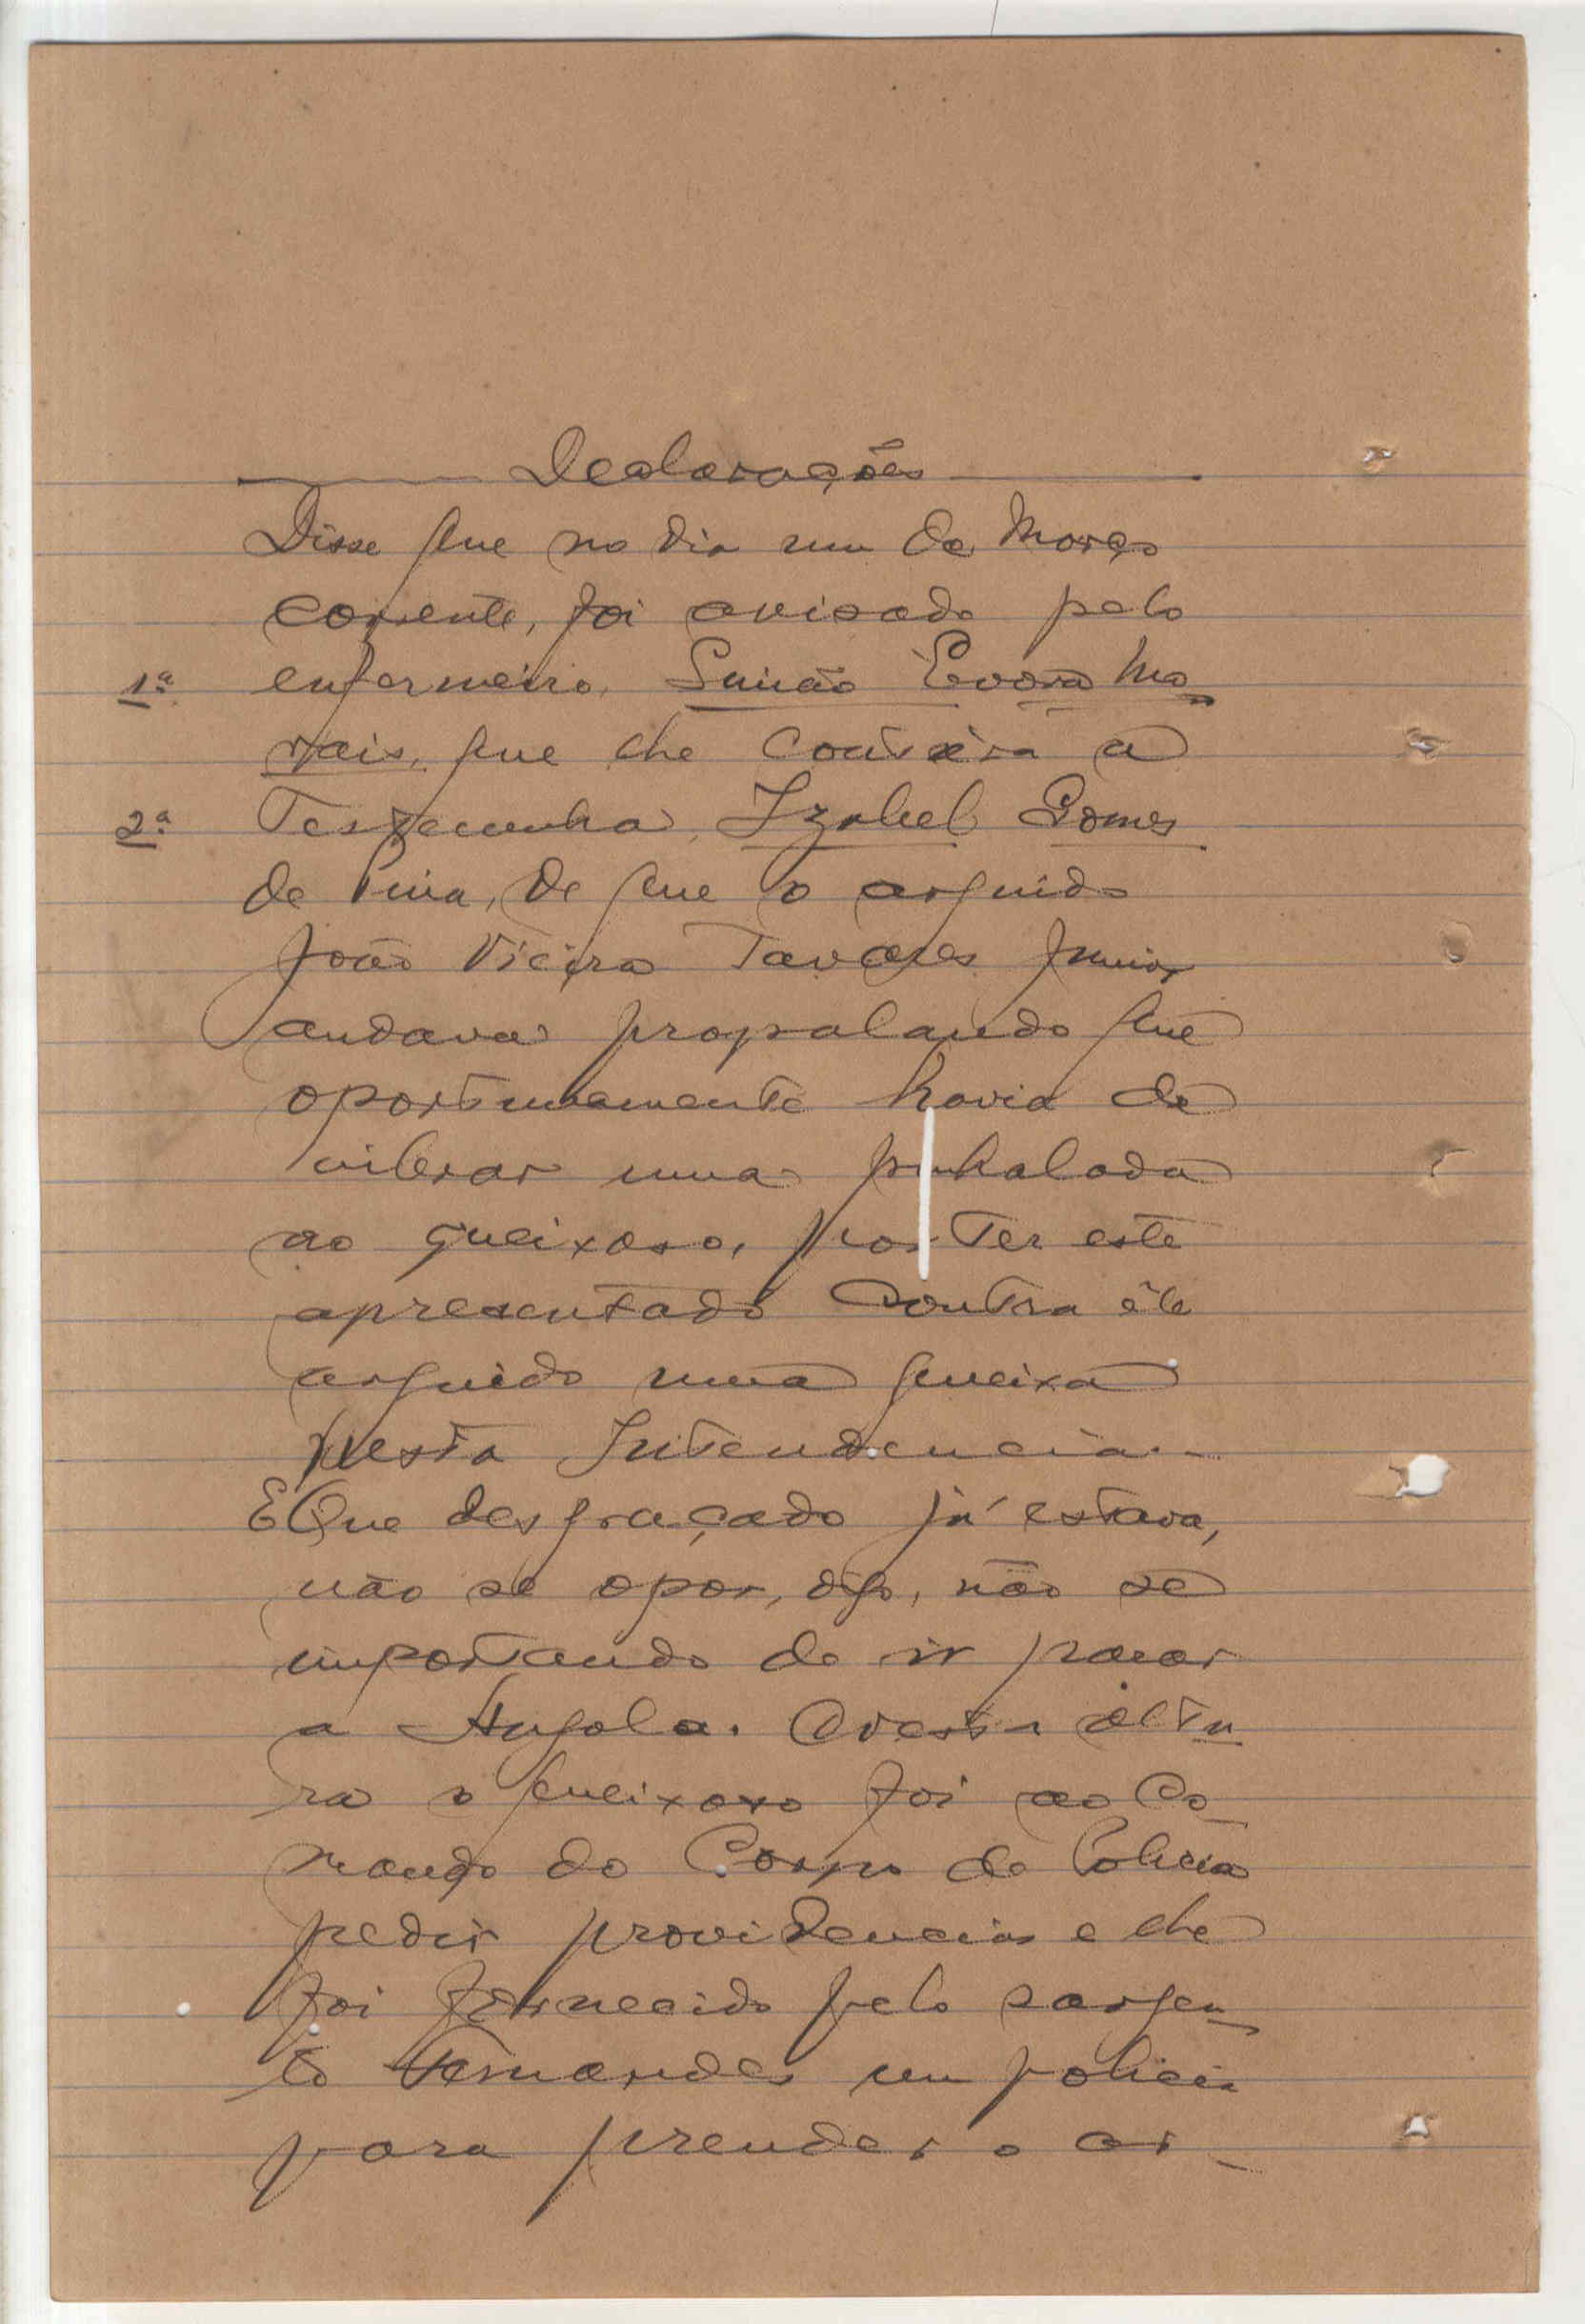 Declarações
Disse que no dia um de Março
corrente, foi avisado pelo
1ª enfermeiro, Simão Évora Mo
rais, que lhe contára a
2ª Testemunha, Izabel Gomes
de Pina, de que o arguido
João Vieira Tavares Junior
andava propalando que
oportunamente havia de
vibrar uma punhalada
ao queixoso, por ter este
apresentado contra êle
arguido uma queixa
nesta Intendencia.-
E Que desgraçado já estava,
não se opor, digo, não se
importando de ir parar
a Angola. Nesta altu
ra o queixoso foi ao Co
mando do Corpo de Policia
pedir providencias e lhe
foi fornecido pelo sargen
to Fernandes um policia
para prender o ar-